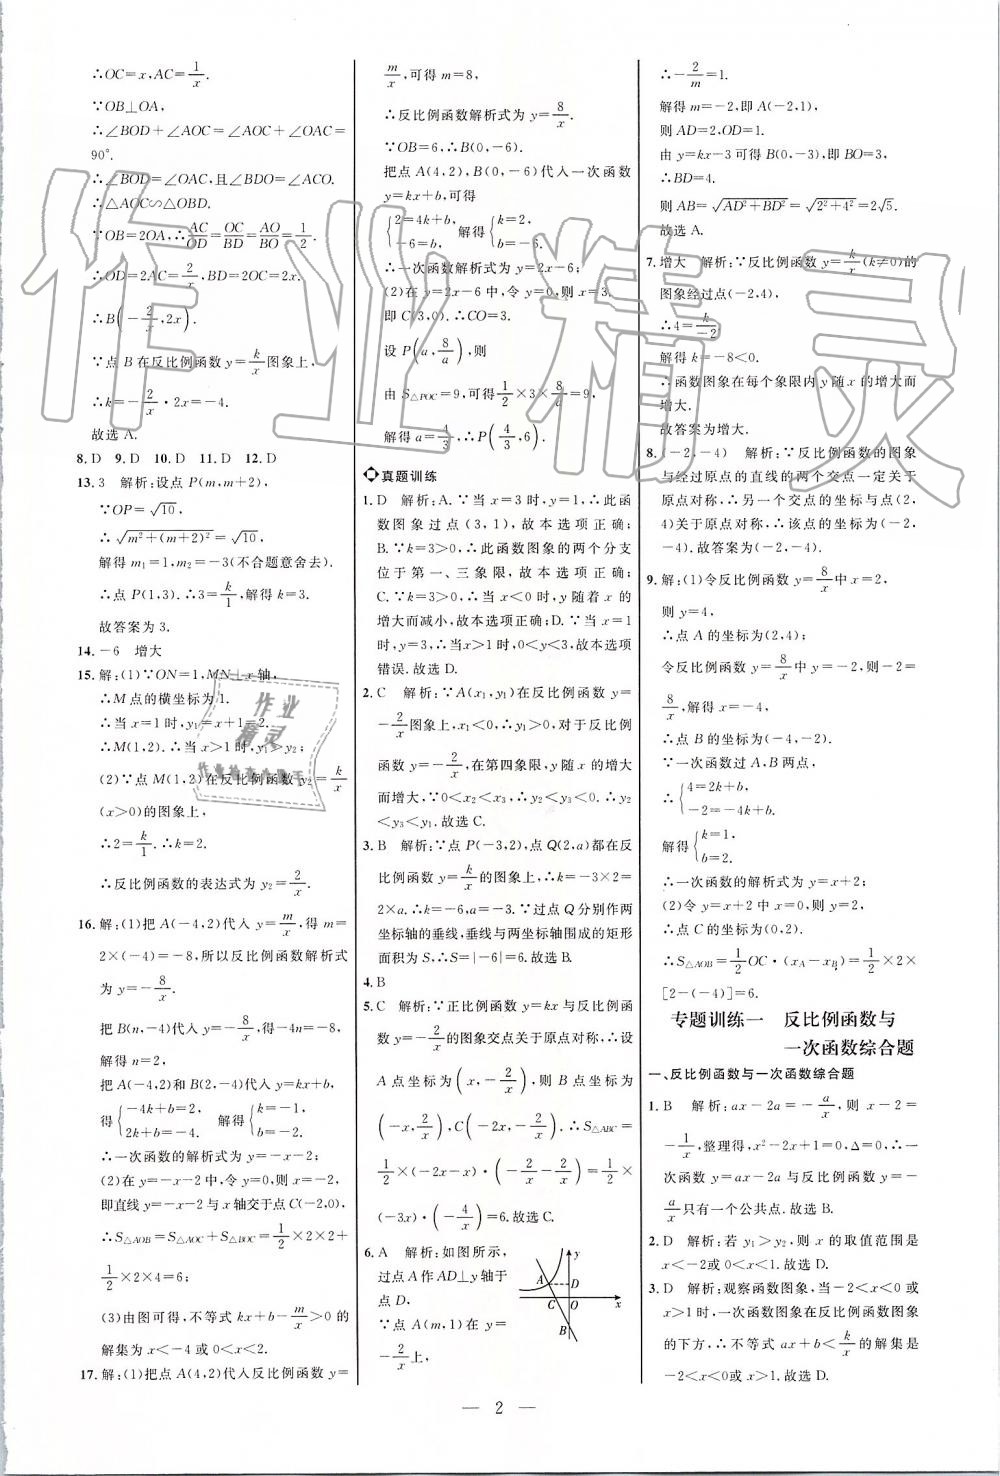 ∴OC=x,AC=1/x.
∵OB⊥OA,
∴∠BOD+∠AOC=∠AOC+∠OAC=
90°.
∴∠BOD=∠OAC,且∠BDO=∠ACO.
∴△AOC∽△OBD.
∵OB=2OA,∴AC/OD=OC/BD=AO/BO=1/2.
∴OD=2AC=2/x,BD=2OC=2x.
∴B(-2/x,2x).
∵点B在反比例函数y=k/x图象上,
∴k=-2/x·2x=-4.
故选A.
8.D 9.D 10.D 11.D 12.D
13.3 解析:设点P(m,m+2),
∵OP=√10,
∴√(m²+(m+2)²)=√10,
解得m₁=1,m₂=-3(不合题意舍去).
∴点P(1,3).∴3=k/1,解得k=3.
故答案为3.
14.-6 增大
15.解:(1)∵ON=1,MN⊥x轴,
∴M点的横坐标为1.
∴当x=1时,y₁=x+1=2.
∴M(1,2).∴当x>1时,y₁>y₂;
(2)∵点M(1,2)在反比例函数y₂=k/x
(x>0)的图象上,
∴2=k/1.∴k=2.
∴反比例函数的表达式为y₂=2/x.
16.解:(1)把A(-4,2)代入y=m/x,得m=
2×(-4)=-8,所以反比例函数解析式
为y=-8/x.
把B(n,-4)代入y=-8/x,得-4n=-8,
解得n=2,
把A(-4,2)和B(2,-4)代入y=kx+b,
得{-4k+b=2, 2k+b=-4. 解得{k=-1, b=-2.
∴一次函数的解析式为y=-x-2;
(2)在y=-x-2中,令y=0,则x=-2,
即直线y=-x-2与x轴交于点C(-2,0),
∴S△AOB=S△AOC+S△BOC=1/2×2×2+
1/2×2×4=6;
(3)由图可得,不等式kx+b-m/x>0的
解集为x<-4或0<x<2.
17.解:(1)把点A(4,2)代入反比例函数y=
m/x,可得m=8,
∴反比例函数解析式为y=8/x.
∵OB=6,∴B(0,-6).
把点A(4,2),B(0,-6)代入一次函数
y=kx+b,可得
{2=4k+b, -6=b, 解得{k=2, b=-6.
∴一次函数解析式为y=2x-6;
(2)在y=2x-6中,令y=0,则x=3,
即C(3,0).∴CO=3.
设P(a,8/a),则
由S△POC=9,可得1/2×3×8/a=9,
解得a=4/3,∴P(4/3,6).
真题训练
1.D 解析:A.∵当x=3时,y=1,∴此函
数图象过点(3,1),故本选项正确;
B.∵k=3>0,∴此函数图象的两个分支
位于第一、三象限,故本选项正确;
C.∵k=3>0,∴当x<0时,y随着x的
增大而减小,故本选项正确;D.∵当x=1
时,y=3,∴当x>1时,0<y<3,故本选项
错误.故选D.
2.C 解析:∵A(x₁,y₁)在反比例函数y=
-2/x图象上,x₁<0,∴y₁>0,对于反比例
函数y=-2/x,在第四象限,y随x的增大
而增大,∵0<x₂<x₃,∴y₂<y₃<0.∴y₂
<y₃<y₁.故选C.
3.B 解析:∵点P(-3,2),点Q(2,a)都在反
比例函数y=k/x的图象上,∴k=-3×2=
2×a.∴k=-6,a=-3.∵过点Q分别作两
坐标轴的垂线,垂线与两坐标轴围成的矩形
面积为S,∴S=|-6|=6.故选B.
4.B
5.C 解析:∵正比例函数y=kx与反比例函
数y=-2/x的图象交点关于原点对称,∴设
A点坐标为(x,-2/x),则B点坐标为
(-x,2/x),C(-2x,-2/x).∴S△ABC=
1/2×(-2x-x)·(-2/x-2/x)=1/2×
(-3x)·(-4/x)=6.故选C.
6.A 解析:如图所示,
过点A作AD⊥y轴于
点D,
∵点A(m,1)在y=
-2/x上,
y
A
D
C
O
x
B
∴-2/m=1.
解得m=-2,即A(-2,1),
则AD=2,OD=1.
由y=kx-3可得B(0,-3),即BO=3,
∴BD=4.
则AB=√(AD²+BD²)=√(2²+4²)=2√5.
故选A.
7.增大 解析:∵反比例函数y=k/x(k≠0)的
图象经过点(-2,4),
∴4=k/-2.
解得k=-8<0.
∴函数图象在每个象限内y随x的增大而
增大.
故答案为增大.
8.(-2,-4) 解析:∵反比例函数的图象
与经过原点的直线的两个交点一定关于
原点对称,∴另一个交点的坐标与点(2,
4)关于原点对称,∴该点的坐标为(-2,
-4).故答案为(-2,-4).
9.解:(1)令反比例函数y=8/x中x=2,
则y=4,
∴点A的坐标为(2,4);
令反比例函数y=8/x中y=-2,则-2=
8/x,解得x=-4,
∴点B的坐标为(-4,-2).
∵一次函数过A,B两点,
∴{4=2k+b, -2=-4k+b.
解得{k=1, b=2.
∴一次函数的解析式为y=x+2;
(2)令y=x+2中x=0,则y=2,
∴点C的坐标为(0,2).
∴S△AOB=1/2OC·(xA-xB)=1/2×2×
[2-(-4)]=6.
专题训练一 反比例函数与
一次函数综合题
一、反比例函数与一次函数综合题
1.B 解析:ax-2a=-a/x,则x-2=
-1/x,整理得,x²-2x+1=0,Δ=0,∴一
次函数y=ax-2a与反比例函数y=-
a/x只有一个公共点.故选B.
2.D 解析:若y₁>y₂,则x的取值范围是
x<-2或0<x<1.故选D.
3.D 解析:观察函数图象,当-2<x<0或
x>1时,一次函数图象在反比例函数图象
的下方,∴不等式ax+b<k/x的解集是
-2<x<0或x>1.故选D.
— 2 —
作业精灵
作业
精灵